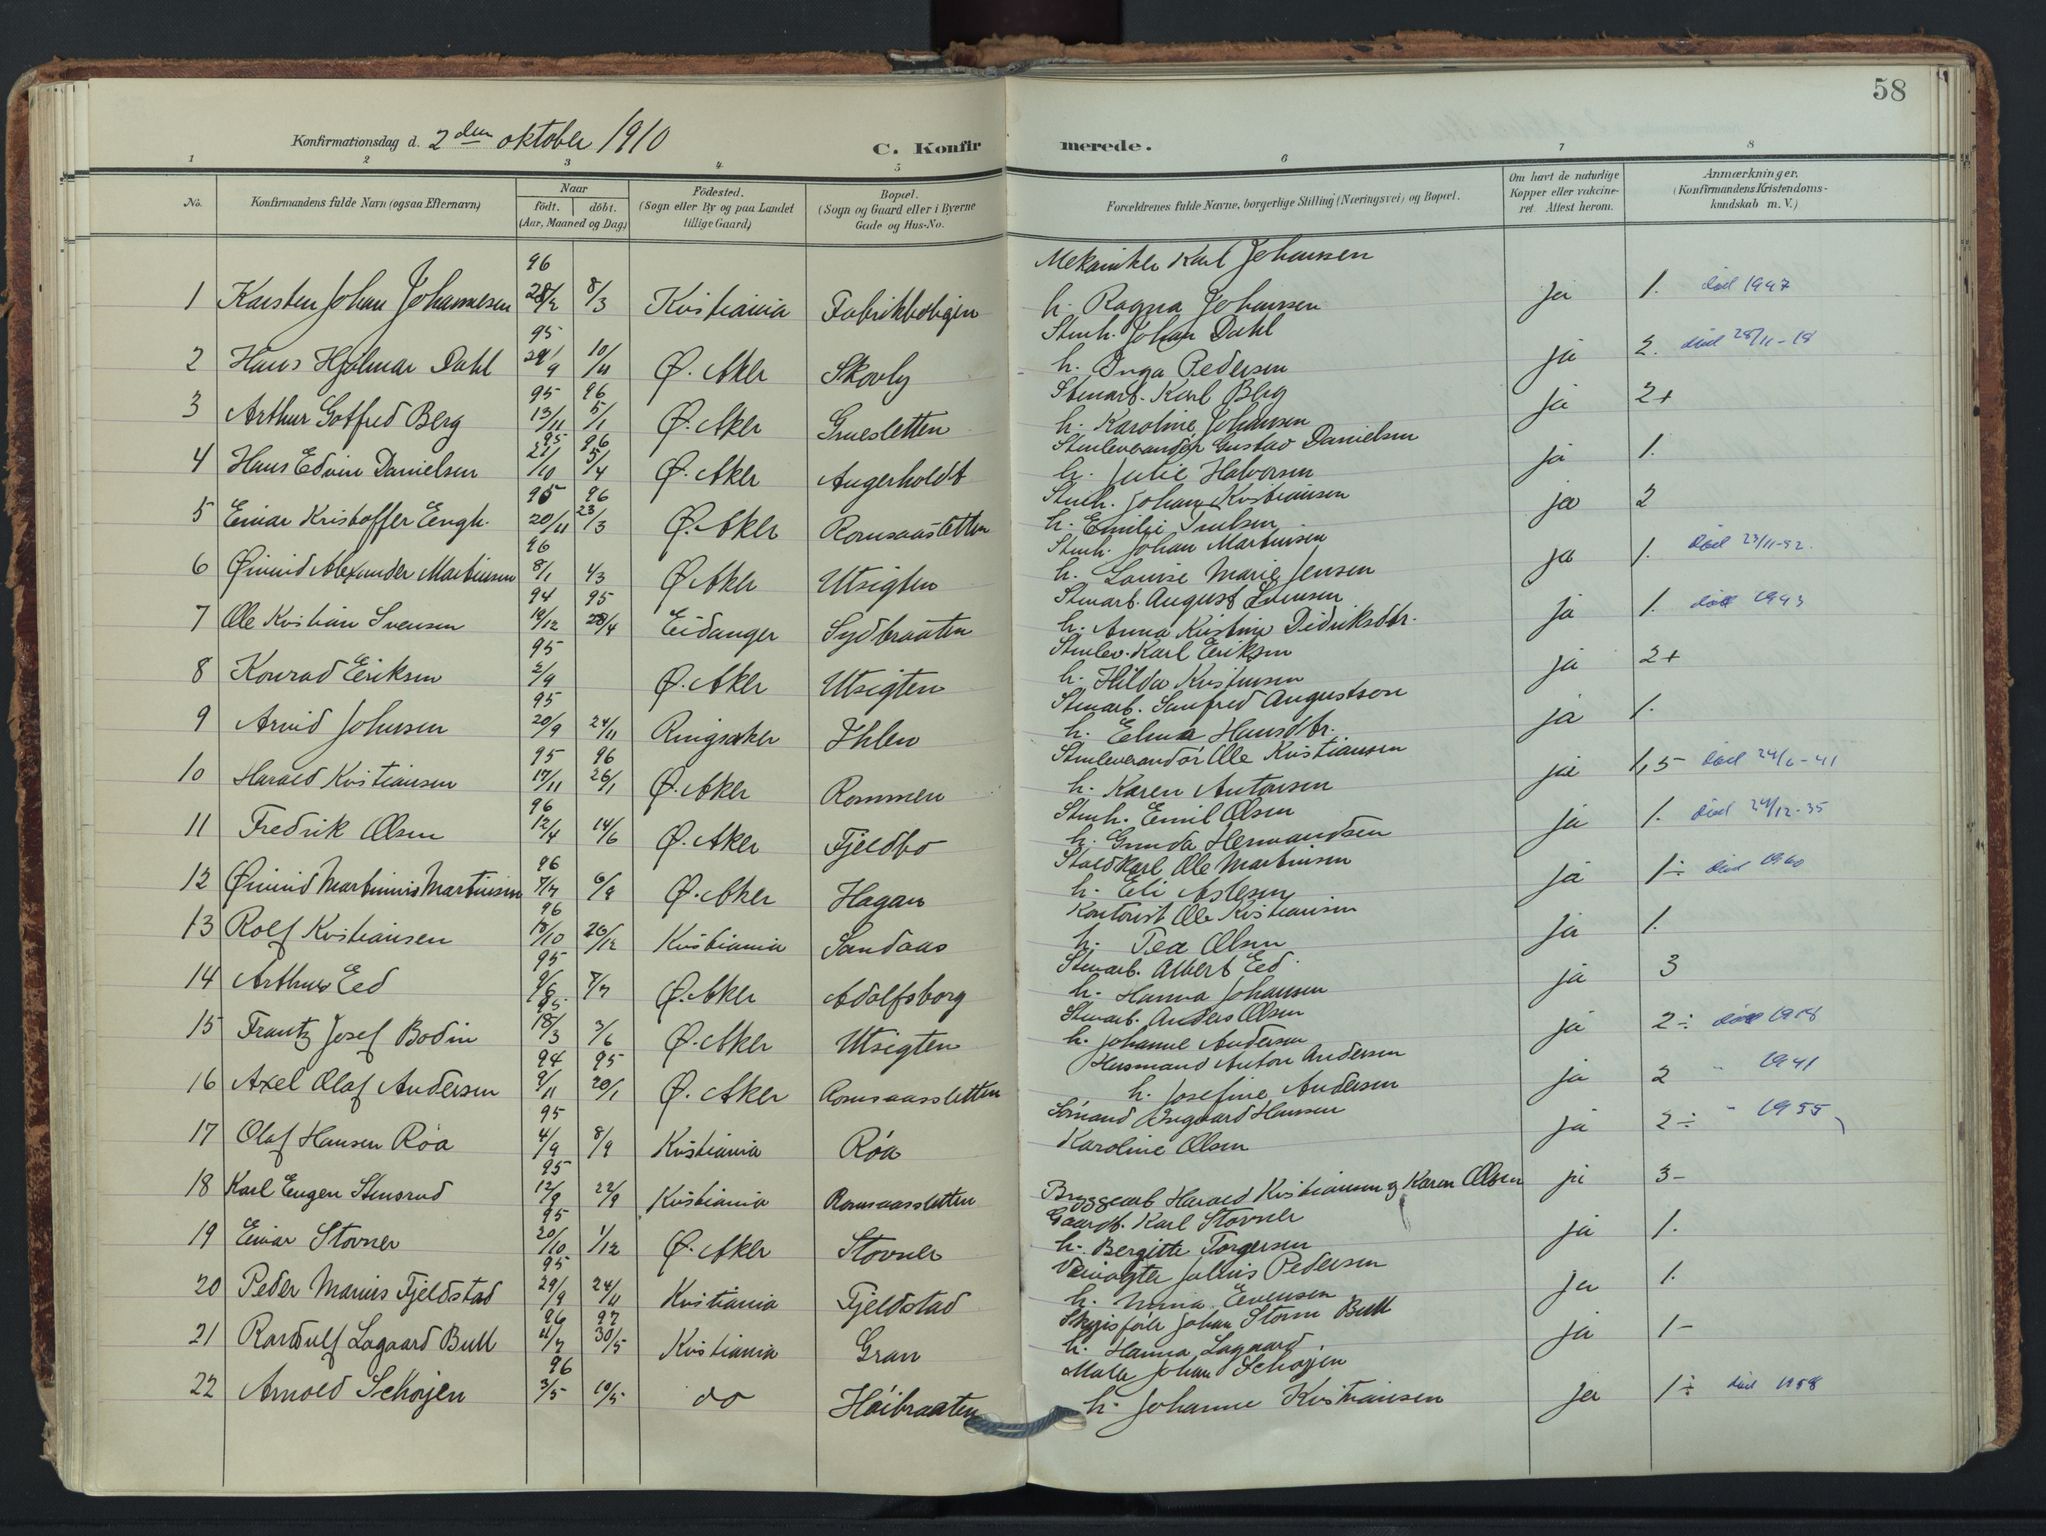 58
Konfirmationsdag d. 2den oktober 1910 C. Konfir merede.
1 2 3 4 5 6 7 8
No. Konfirmandens fulde Navn (ogsaa Efternavn) Naar født. døbt. (Aar, Maaned og Dag) Födested. (Sogn eller By og paa Landet tillige Gaard) Bopæl. (Sogn og Gaard eller i Byerne Gade og Hus-No. Forældrenes fulde Navne, borgerlige Stilling (Næringsvei) og Bopæl. Om havt de naturlige Kopper eller vakcineret. Attest herom. Anmærkninger. (Konfirmandens Kristendomskundskab m. V.)
96 Mekaniker Karl Johansen
1 Karsten Johan Johannesen 28/2 8/3 Kristiania Fabrikboligen h. Ragna Johansen ja 1. död 1947
95 Stenh. Johan Dahl
2 Hans Hjalmar Dahl 29/9 10/11 Ø. Aker Skovly h. Inga Pedersen ja 2. död 28/11-18
95 96 Stenarb. Karl Berg
3 Arthur Gotfred Berg 13/11 5/1 Ø. Aker Gruesletten h. Karoline Johansen ja 2+
95 96 Stenleverandør Gustav Danielsen
4 Hans Edvin Danielsen 21/10 5/4 Ø. Aker Augerholdt h. Julie Halvorsen ja 1.
95 96 Stenh. Johan Kristiansen
5 Einar Kristoffer Engh. 20/11 23/3 Ø. Aker Romsaassletten h. Emilie Truls​en ja 2
96 Stenh. Johan Martinsen
6 Øivind Alexander Martinsen 8/1 4/3 Ø Aker Utsigten h. Louise Marie Jensen ja 1. död 23/11-52.
94 95 Stenarb. August Svensen
7 Ole Kristian Svensen 19/12 28/4 Eidanger Sydbraaten h. Anna Kristine Didriksdtr. ja 1. död 1943
95 Stenlev. Karl Eriksen
8 Konrad Eriksen 2/9 Ø. Aker Utsigten h. Hilda Kristensen ja 2+
95 Stenarb. Sanfred Augustson
9 Arvid Johnsen 20/9 24/11 Ringsaker Ihlen h. Elma Hansdtr. ja 1.
95 96 Stenleverandør Ole Kristiansen
10 Harald Kristiansen 17/11 26/1 Ø. Aker Rommen h. Karen Antonsen ja 1,5 död 24/6-41
96 Stenh. Emil Olsen
11 Fredrik Olsen 12/4 14/6 Ø. Aker Fjeldbo h. Gunda Hermandsen ja 1. död 24/12-35
96 Staldkarl Ole Martinsen
12 Øivind Martinius Martinsen 7/7 6/9 Ø. Aker Hagan h. Eli Aslesen ja 1÷ död 1960
96 Kontorist Ole Kristiansen
13 Rolf Kristiansen 18/10 26/12 Kristiania Sandaas h. Tea Olsen ja 1.
95 Stenarb. Albert Eed.
14 Arthur Eed 9/6 7/7 Ø. Aker Adolfsborg h. Hanna Johansen ja 3
95 Stenarb. Anders Olsen
15 Frantz Josef Bodin 18/3 3/6 Ø. Aker Utsigten h. Johanne Andersen ja 2÷
94 95 Husmand Anton Andersen
16 Axel Olaf Andersen 9/11 20/1 Ø. Aker Romsaassletten h. Josefine Andersen ja 2 " 1941
95 Sømand Ingvard Hansen
17 Olaf Hansen Røa 4/9 8/9 Kristiania Røa Karoline Olsen ja 2÷ " 1955
95
18 Karl Eugen Stensrud 12/9 22/9 Kristiania Romsaassletten Bryggearb Harald Kristiansen og Karen Olsen ja 3-
95 Gaardb. Karl Stovner
19 Einar Stovner 20/10 1/12 Ø. Aker Stovner h. Bergitte Torgersen ja 1.
95 Veivogter Julius Pedersen
20 Peder Marius Fjeldstad 29/9 24/11 Kristiania Fjeldstad h. Mina Evensen ja 1.
96 97 Johan Storm Bull
21 Lagaard Bull 4/7 30/5 Kristiania Gran h. Hanna Lagaard ja 1-
96 Maler Johan Schøjen
22 Arnold Schøjen 3/5 10/5 do Høibraaten h. Johanne Kristiansen ja 1÷ död 1958